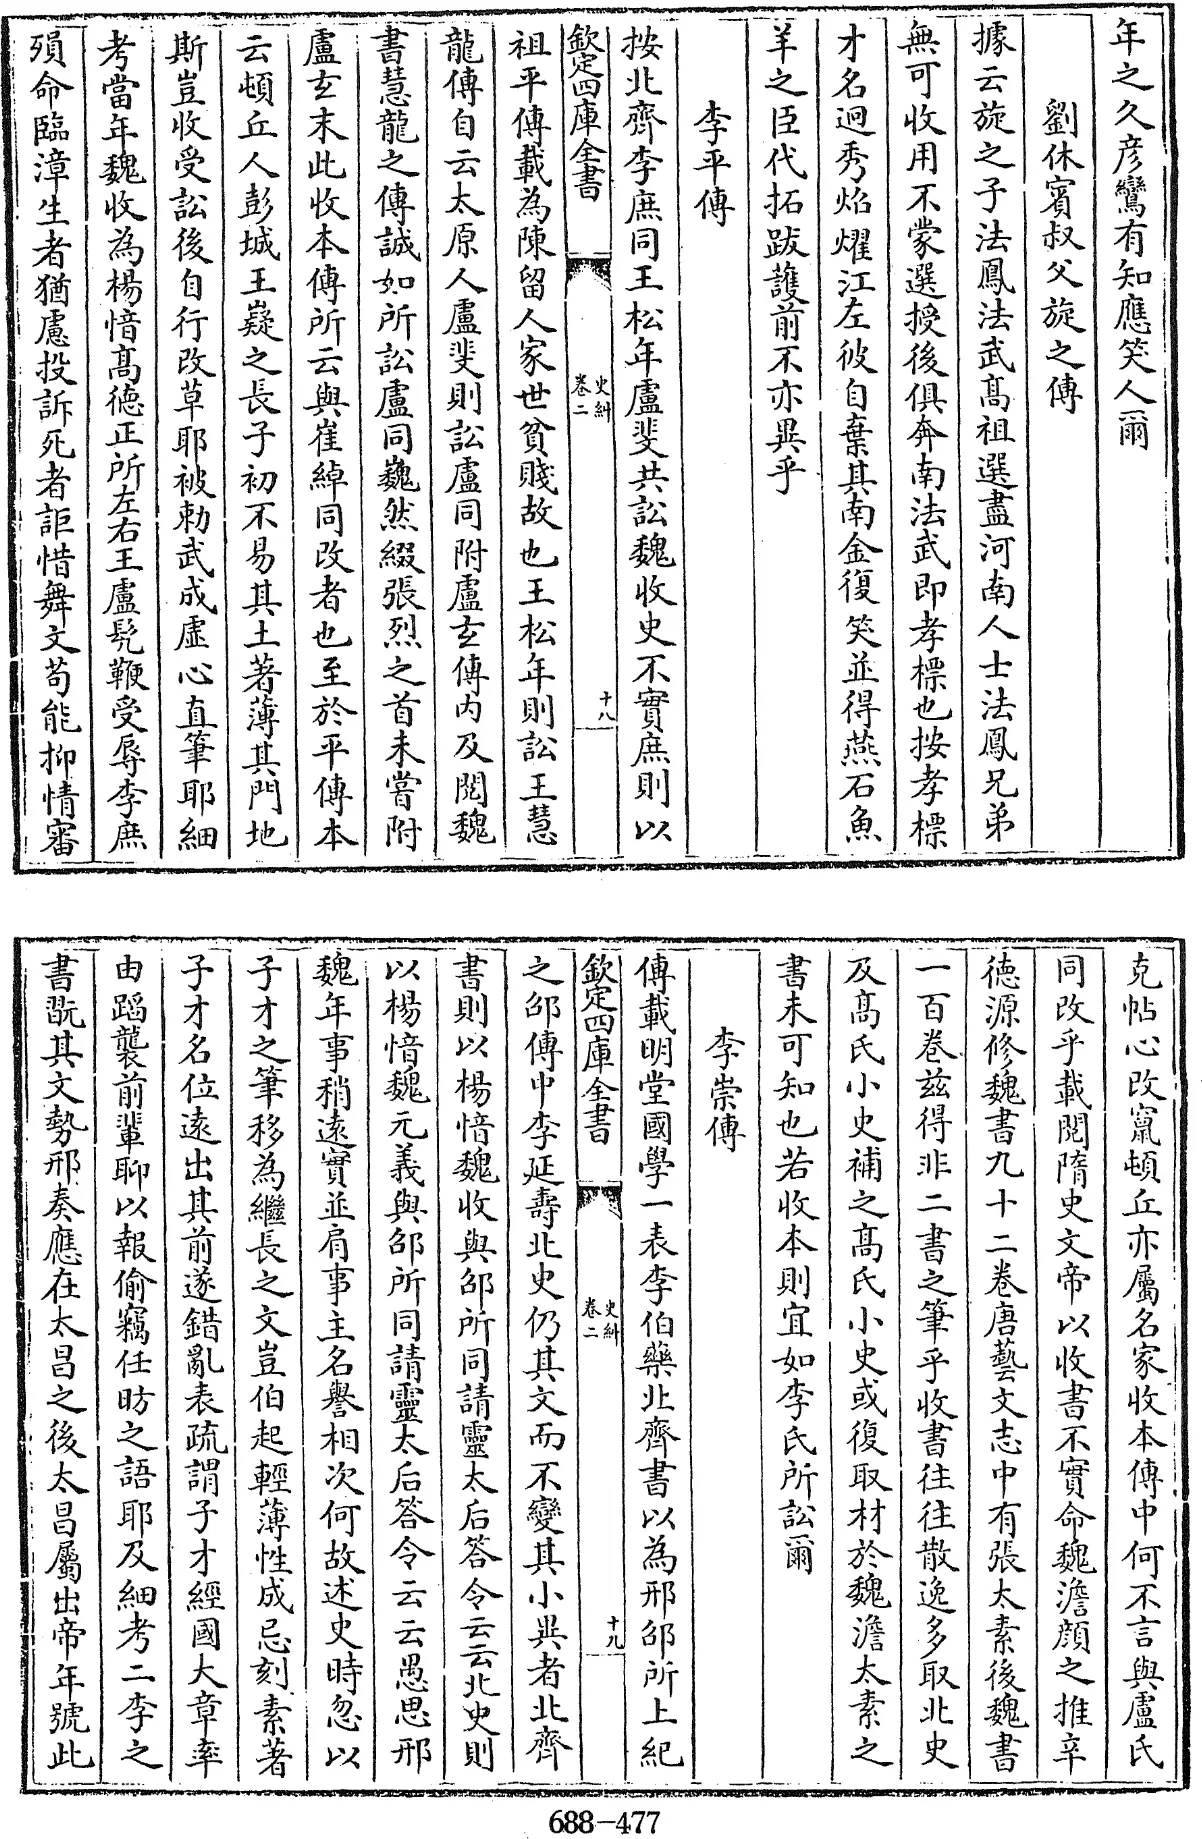 年之久彦鸞有知應笑人爾
劉休賓叔父旋之傳
據云旋之子法鳳法武高祖選盡河南人士法鳳兄弟
無可收用不蒙選授後俱奔南法武即孝標也按孝標
才名迥秀焰燿江左彼自棄其南金復笑並得燕石魚
羊之臣代拓跋護前不亦異乎
李平傳
按北齊李庶同王松年盧斐共訟魏收史不實庶則以
欽定四庫全書
史糾
卷二
十八
祖平傳載為陳留人家世貧賤故也王松年則訟王慧
龍傳自云太原人盧斐則訟盧同附盧玄傳内及閱魏
書慧龍之傳誠如所訟盧同巍然綴張烈之首未嘗附
盧玄末此收本傳所云與崔綽同改者也至於平傳本
云頓丘人彭城王嶷之長子初不易其土著薄其門地
斯豈收受訟後自行改草耶被勅武成虚心直筆耶細
考當年魏收為楊愔高德正所左右王盧髡鞭受辱李庶
殞命臨漳生者猶慮投訴死者詎惜舞文苟能抑情審
克帖心改竄頓丘亦屬名家收本傳中何不言與盧氏
同改乎載閱隋史文帝以收書不實命魏澹顔之推辛
德源修魏書九十二卷唐藝文志中有張太素後魏書
一百卷兹得非二書之筆乎收書往往散逸多取北史
及高氏小史補之高氏小史或復取材於魏澹太素之
書未可知也若收本則宜如李氏所訟爾
李崇傳
傳載明堂國學一表李伯藥北齊書以為邢邵所上紀
欽定四庫全書
史糾
卷二
十九
之邵傳中李延壽北史仍其文而不變其小異者北齊
書則以楊愔魏收與邵所同請靈太后答令云云北史則
以楊愔魏元義與邵所同請靈太后答令云云愚思邢
魏年事稍遠實並肩事主名譽相次何故述史時忽以
子才之筆移為繼長之文豈伯起輕薄性成忌刻素著
子才名位遠出其前遂錯亂表疏謂子才經國大章率
由蹈襲前輩聊以報偷竊任昉之語耶及細考二李之
書翫其文勢邢奏應在太昌之後太昌屬出帝年號此
688-477